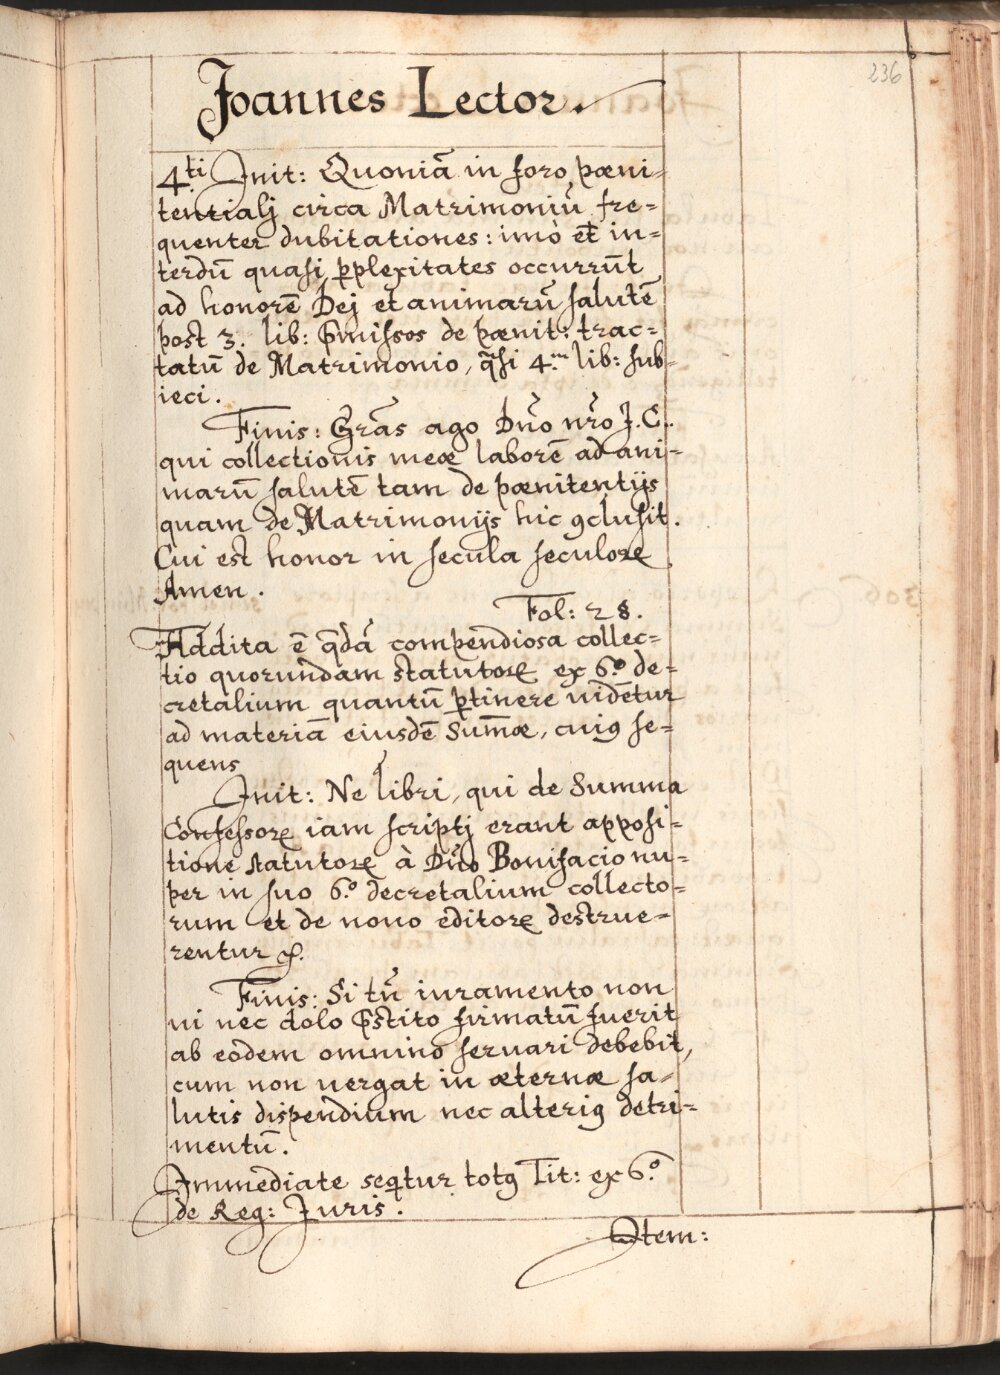 236
Joannes Lector.
4.ti Init: Quoniā in foro pæni-
tentialj circa Matrimoniū fre-
quenter dubitationes: imò et in-
terdū quasi ꝑplexitates occurrūt
ad honorē Dej et animarū salutē
post 3. lib: p̄missos de pænit: trac-
tatū de Matrimonio, q̄si 4.m lib: sub-
ieci.
Finis: Gr̄as ago Dn̄o nr̄o J.C..
qui collectionis meæ laborē ad ani-
marū salutē tam de pænitentijs
quam de Matrimonijs hic ꝯclusit.
Cui est honor in secula seculoꝝ
Amen.
Fol: 28.
Addita ē q̄dā compendiosa collec-
tio quorundam statutoꝝ ex 6.o de-
cretalium quantū ꝑtinere uidētur
ad materiā eiusdē Sum̄æ, cuiꝯ se-
quens
Init: Ne libri, qui de Summa
Confessoꝝ iam scriptj erant apposi-
tione statutoꝝ à Dn̄o Bonifacio nu-
per in suo 6.o decretalium collecto-
rum et de nouo editoꝝ destrue-
rentur ꝛc.
Finis: Si tn̄ iuramento non
ui nec dolo p̄stito firmatū fuerit
ab eodem omnino seruari debebit,
cum non uergat in æternæ sa-
lutis dispendium nec alteriꝯ detri-
mentū.
Immediate seq̄tur totꝯ Tit: ex 6.o
de Reg: Juris.
Item: